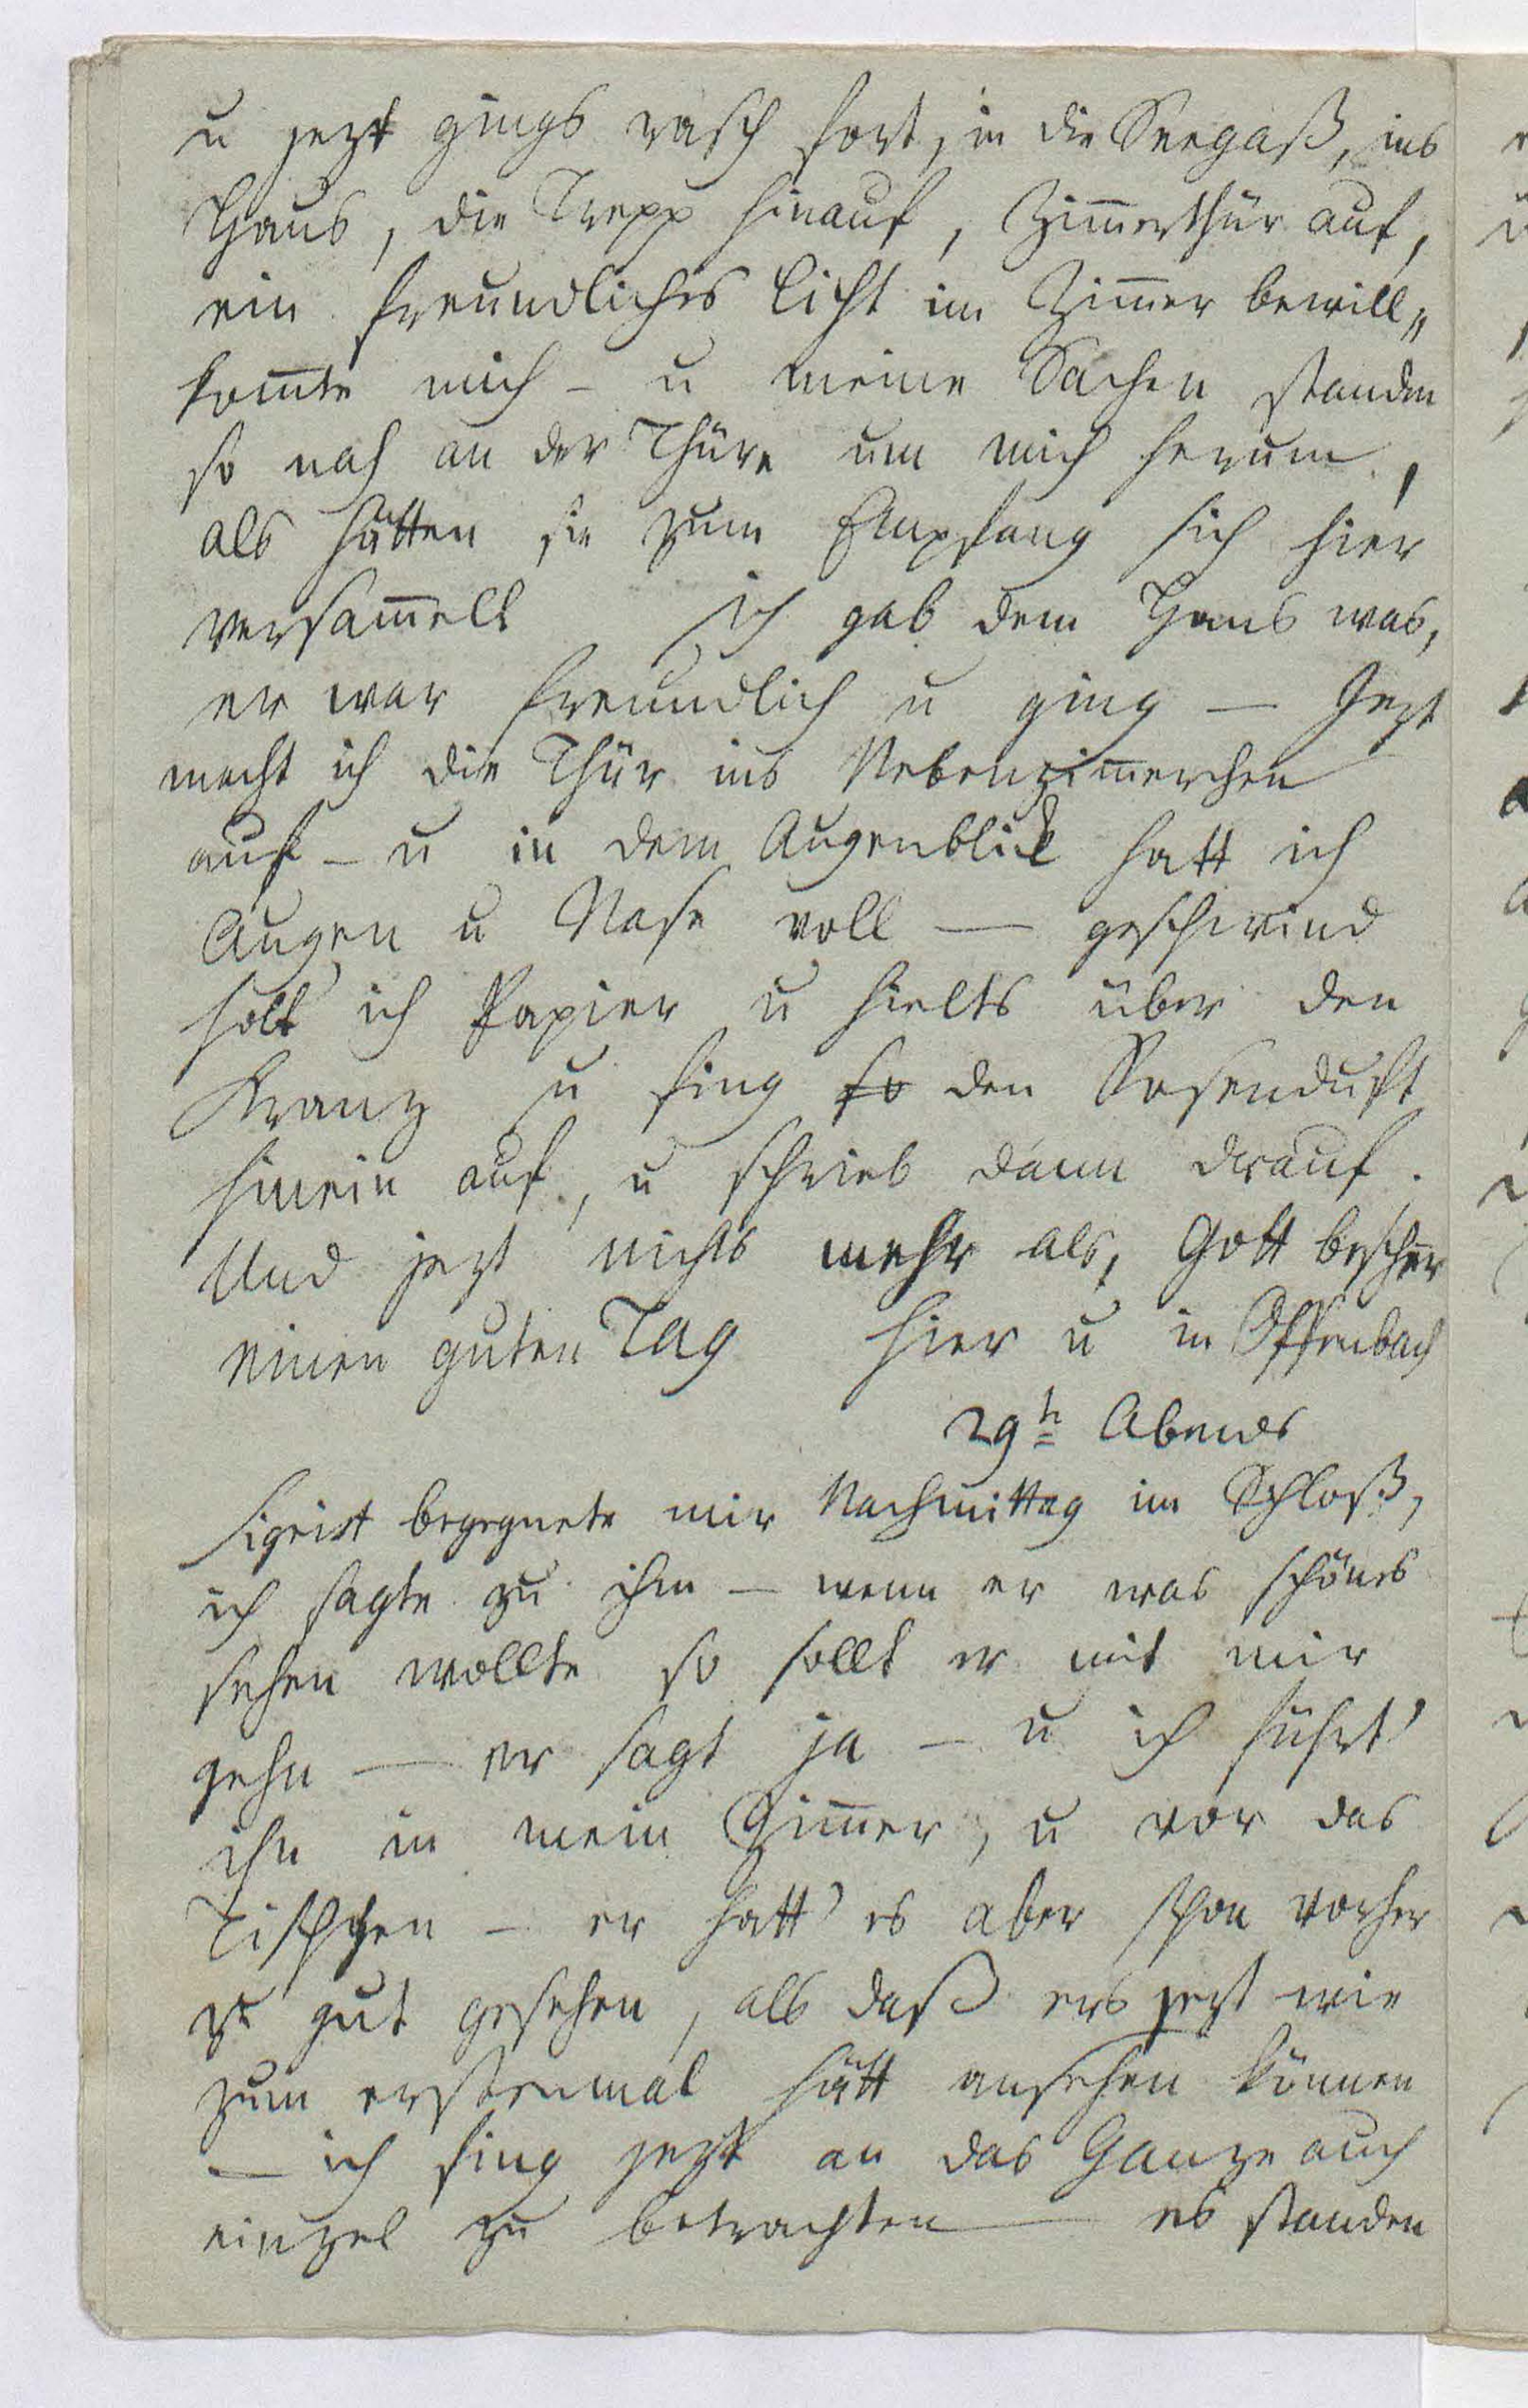 u jezt gings rasch fort, in die Seegaß, ins
Haus, die Trepp hinauf, Zim̅erthür auf,
ein freundliches Licht im Zim̅er bewill„
kom̅te mich – u meine Sachen standen
so nah an der Thüre um mich herum,
als hätten sie zum Empfang sich hier
versam̅elt ich gab dem Hans was,
er war freundlich u ging — Jezt
macht ich die Thür ins Nebenzim̅erchen
auf – u in dem Augenblick hatt ich
Augen u Nase voll — geschwind
holt ich Papier u hielts über den
Kranz u fing so den Rosenduft
hinein auf, u schrieb dann drauf.
Und jezt nichts mehr als, Gott bescher
einen guten Tag hier u in Offenbach
29t Abends
Sigrist begegnete mir Nachmittag im Schloß,
ich sagte zu ihm – wenn er was schönes
sehen wollte so sollt er mit mir
gehn — er sagt ja – u ich führt'
ihn in mein Zim̅er, u vor das
Tischgen – er hatt' es aber schon vorher
zu gut gesehen, als daß ers jezt wie
zum erstenmal hätt ansehen können
– ich fing jezt an das Ganze auch
einzel zu betrachten — es standen